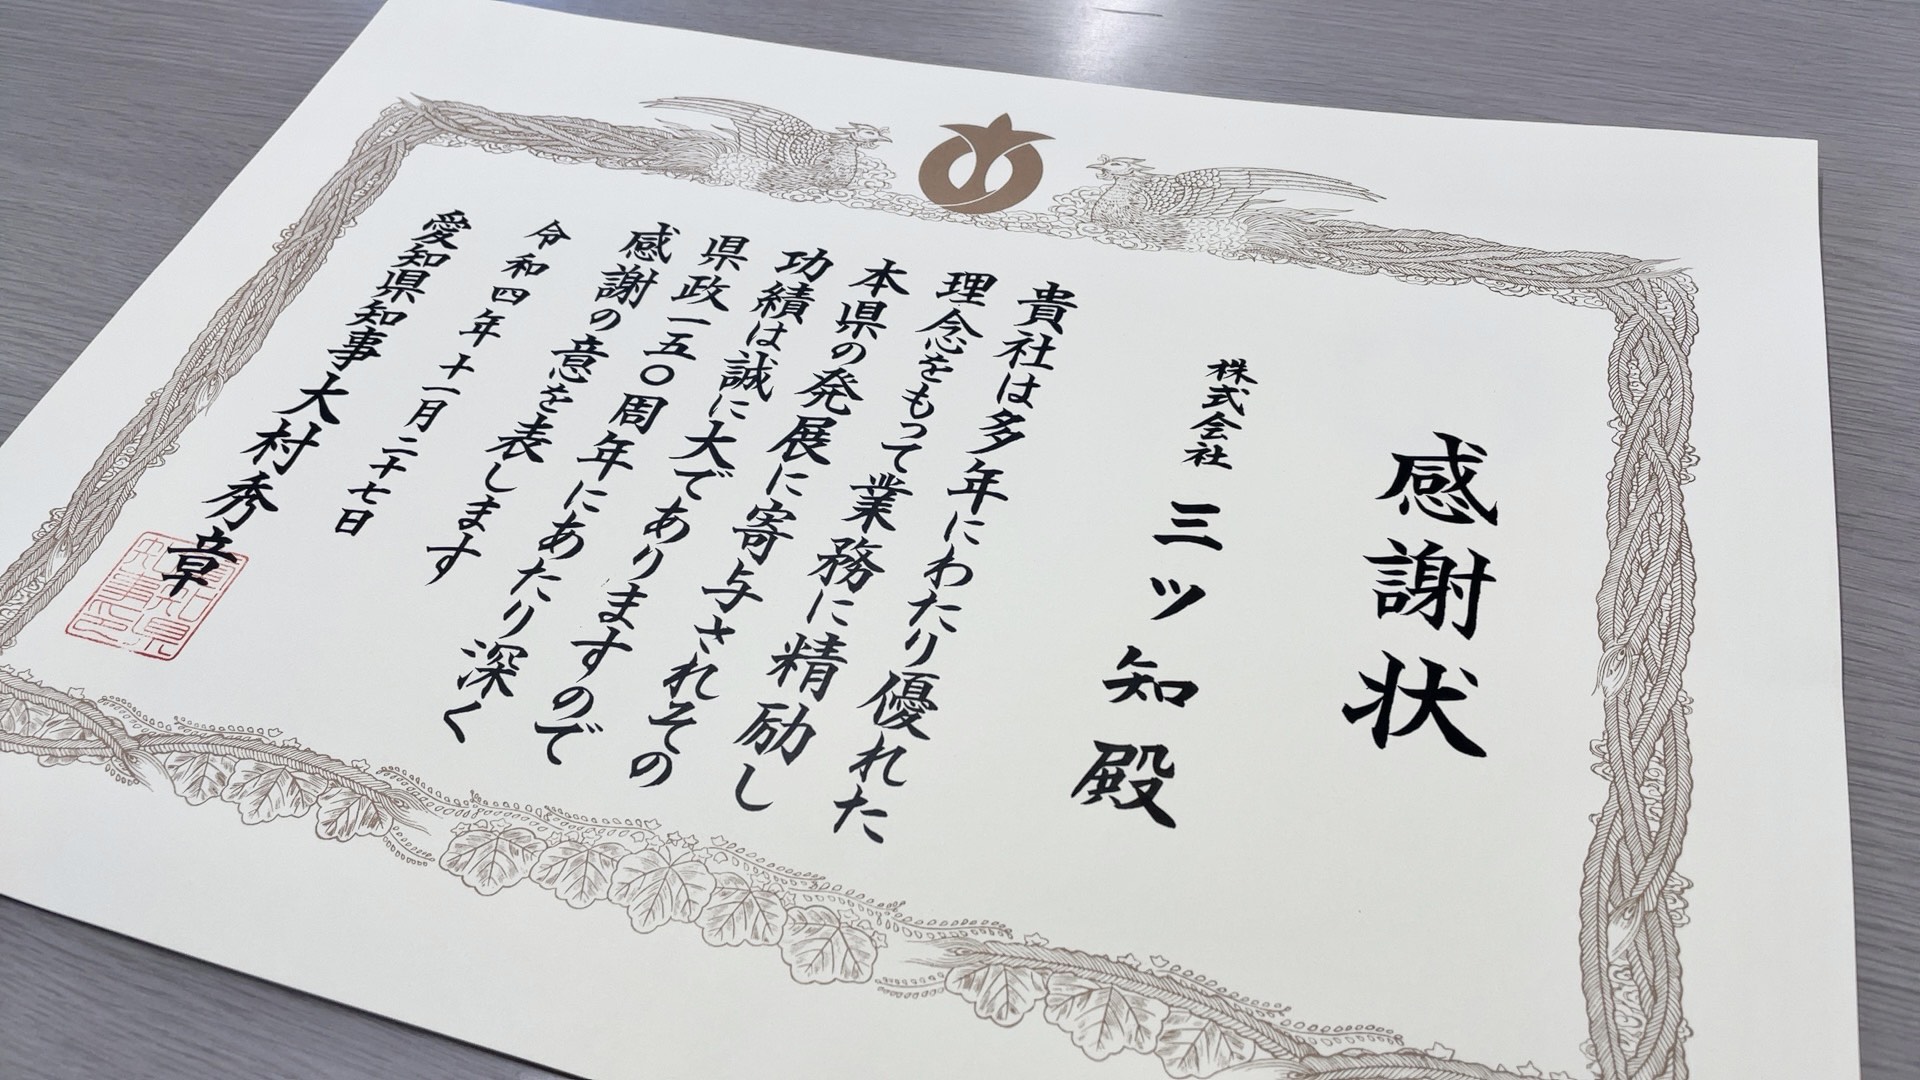 感謝状
株式会社 三ツ知殿
貴社は多年にわたり優れた
理念をもって業務に精励し
本県の発展に寄与されその
功績は誠に大でありますので
県政一五〇周年にあたり深く
感謝の意を表します
令和四年十一月二十七日
愛知県知事 大村秀章